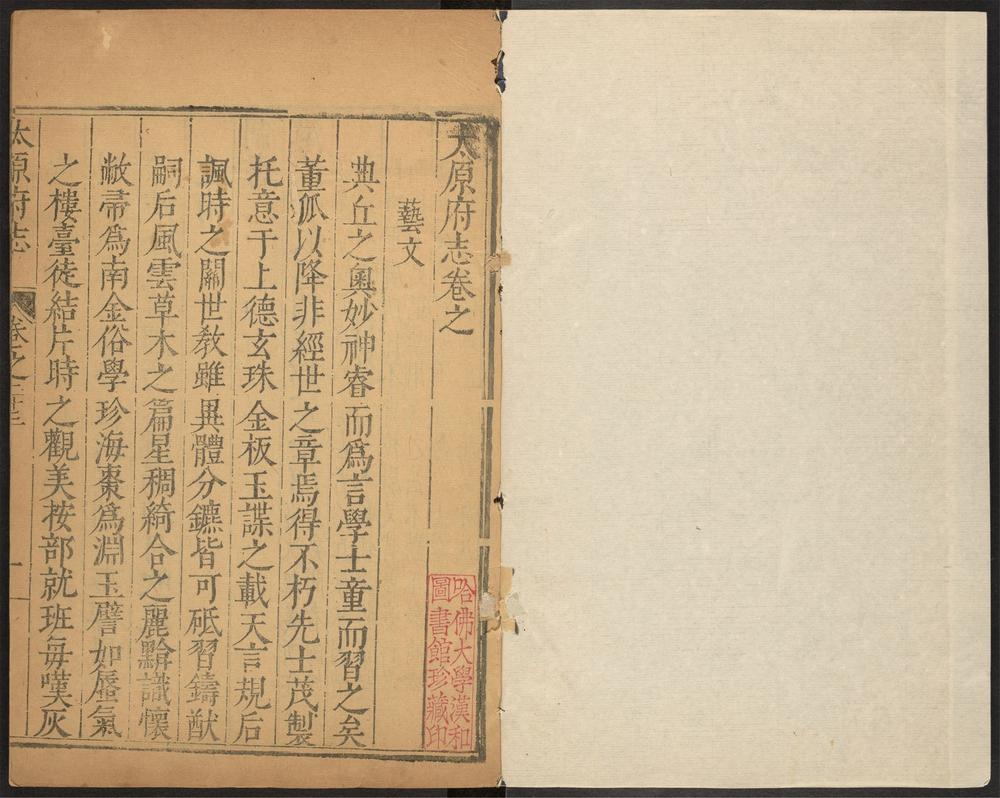 太原府志卷之
藝文
典丘之奧妙神睿而爲言學士童而習之矣
董狐以降非經世之章焉得不朽先士茂製
托意于上德玄珠金板玉諜之載天言規后
諷時之關世敎雖異體分鑣皆可砥習鑄猷
嗣后風雲草木之篇星稠綺合之麗黯識懷
敝帚爲南金俗學珍海棗爲淵玉譬如蜃氣
之樓臺徒結片時之觀美按部就班每嘆灰
太原府志
卷之
一
哈佛大學漢和
圖書館珍藏印